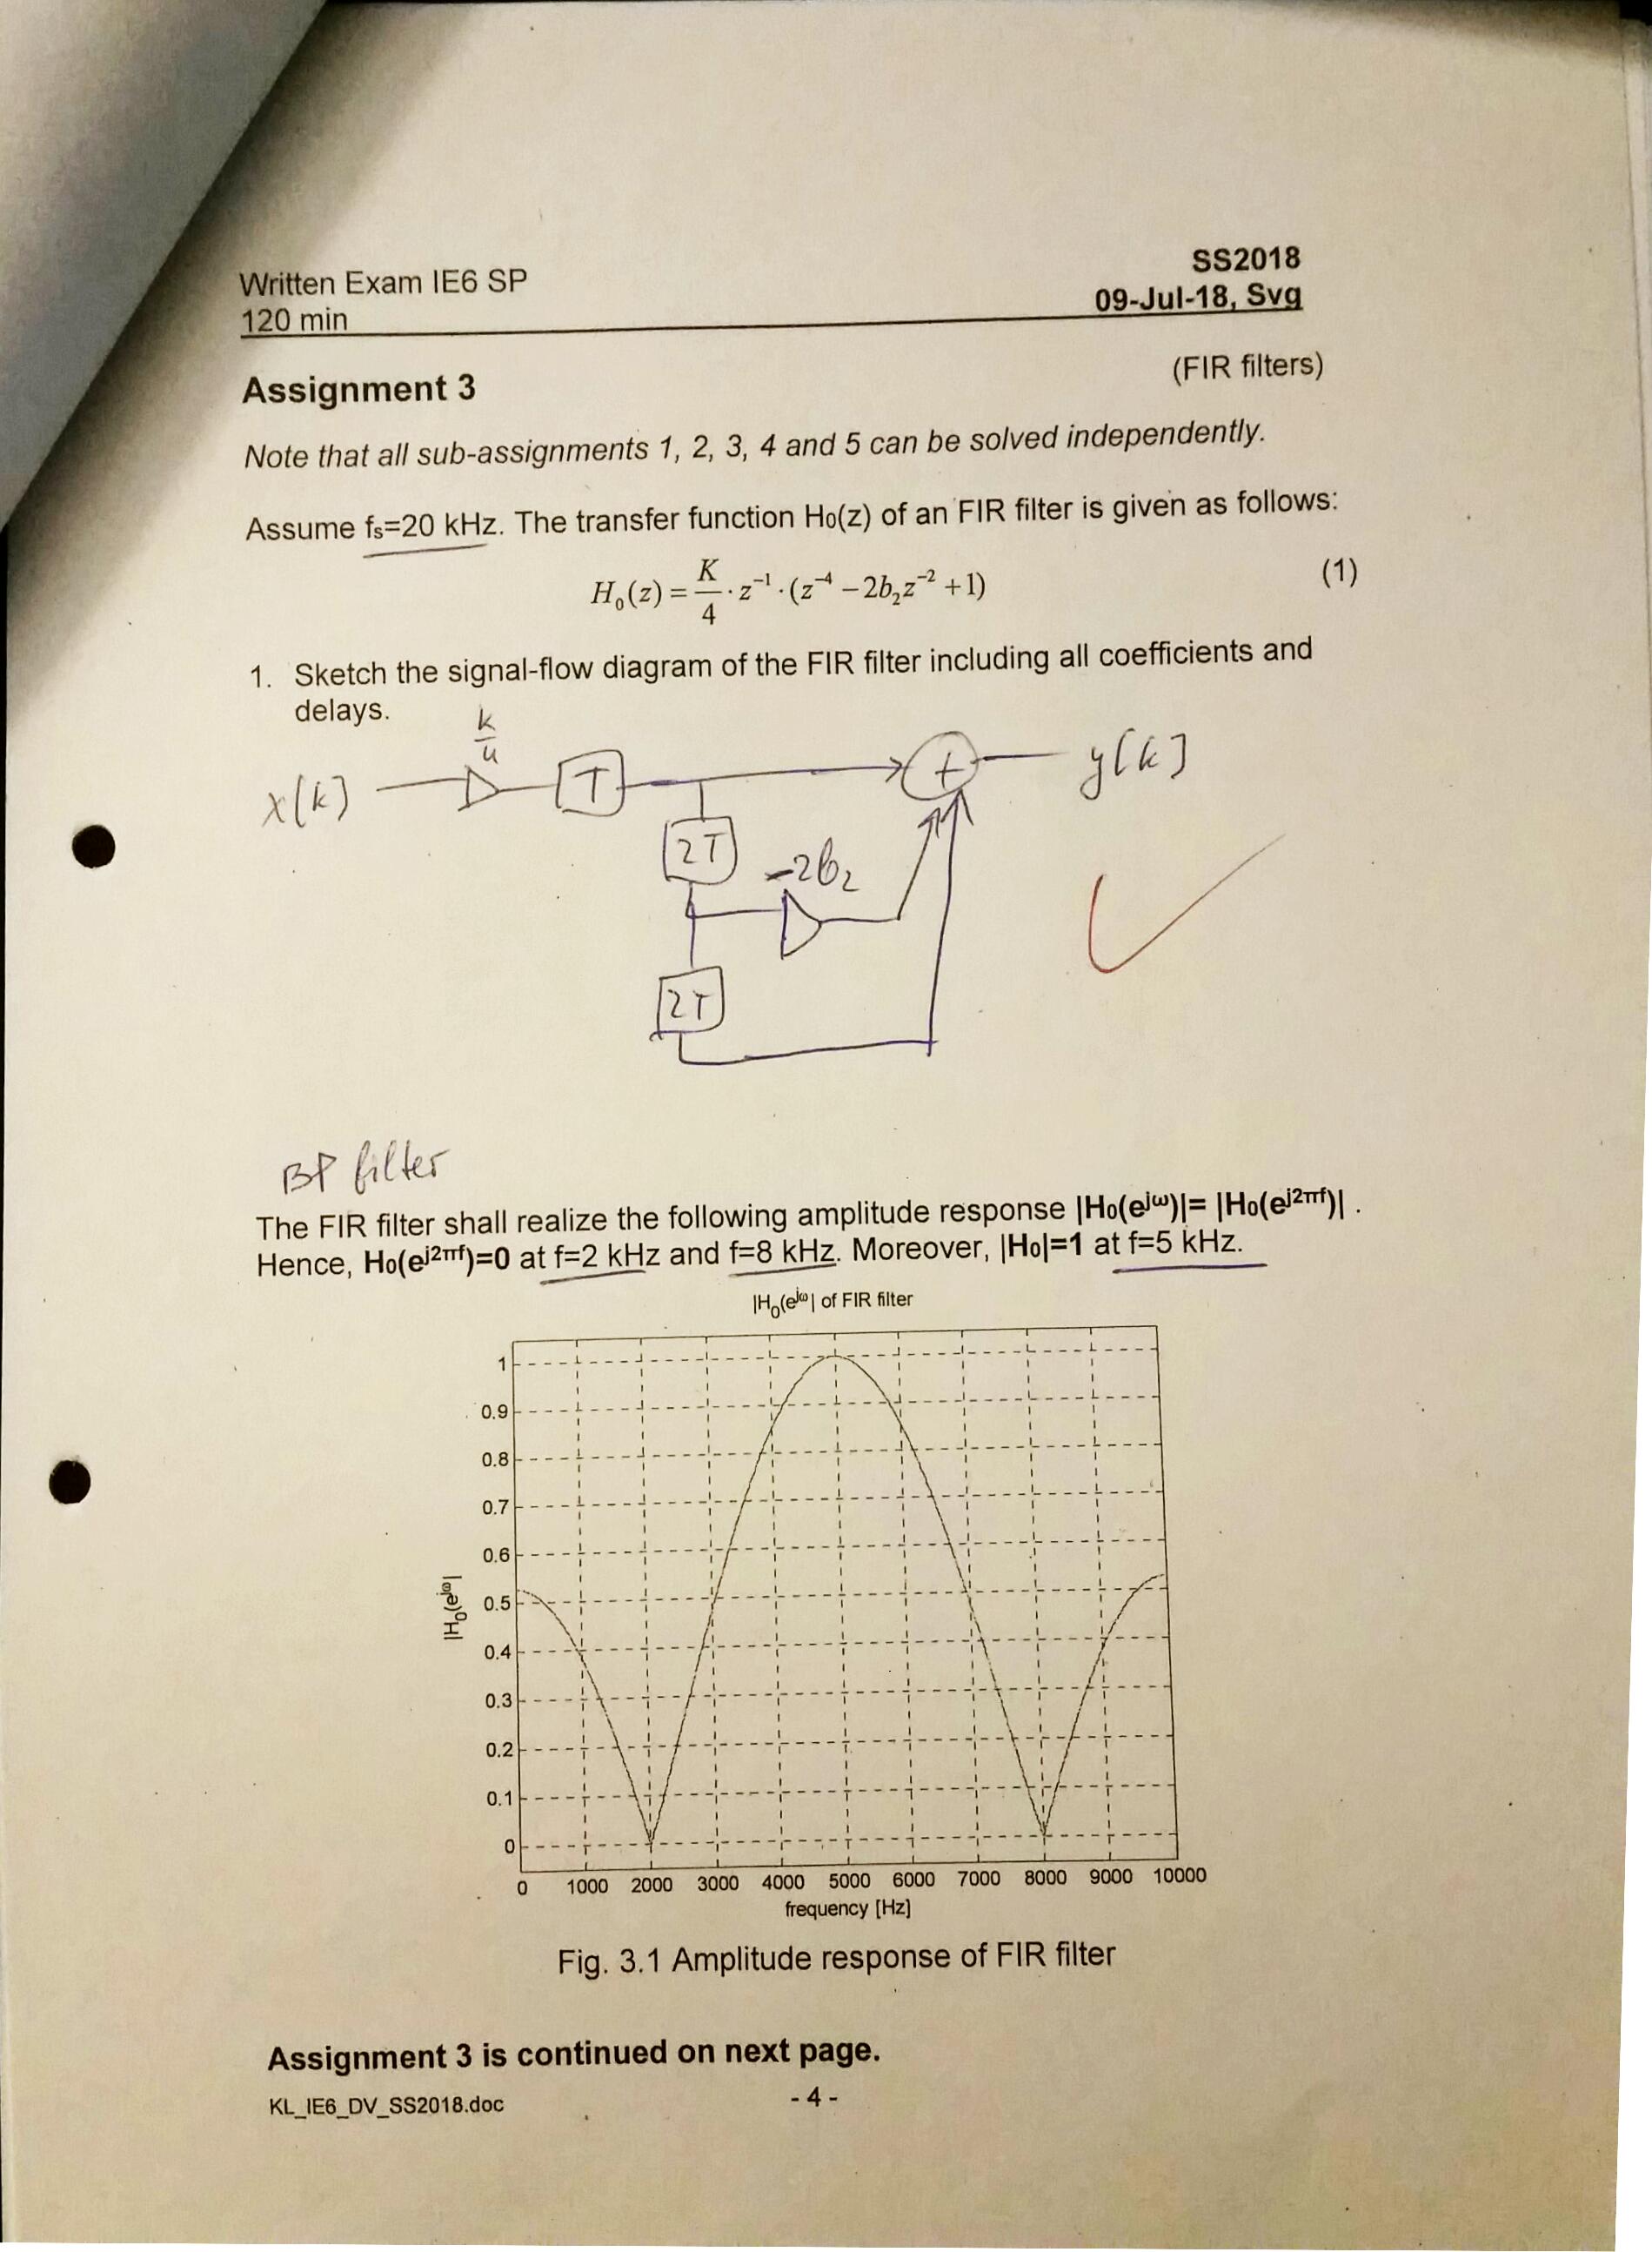 SS2018
Written Exam IE6 SP
09-Jul-18, Svg
120 min
(FIR filters)
Assignment 3
Note that all sub-assignments 1, 2, 3, 4 and 5 can be solved independently.
Assume fs=20 kHz. The transfer function H₀(z) of an FIR filter is given as follows:
H₀(z) = K/4 · z⁻¹ · (z⁻⁴ − 2b₂z⁻² + 1) (1)
1. Sketch the signal-flow diagram of the FIR filter including all coefficients and
delays.
k/4
x[k] T + y[k]
2T -2b₂
2T
BP filter
The FIR filter shall realize the following amplitude response |H₀(e^jω)|= |H₀(e^j2πf)| .
Hence, H₀(e^j2πf)=0 at f=2 kHz and f=8 kHz. Moreover, |H₀|=1 at f=5 kHz.
|H₀(e^jω| of FIR filter
1
0.9
0.8
0.7
0.6
0.5
0.4
0.3
0.2
0.1
0
|H₀(e^jω|
0 1000 2000 3000 4000 5000 6000 7000 8000 9000 10000
frequency [Hz]
Fig. 3.1 Amplitude response of FIR filter
Assignment 3 is continued on next page.
KL_IE6_DV_SS2018.doc
- 4 -